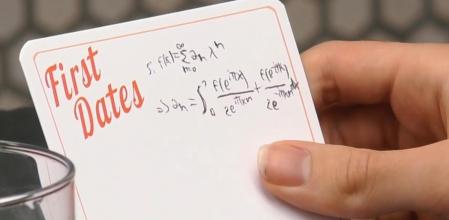 First
Dates
S. f(x)=∑_{n=0}^{∞} a_n x^n
=> a_n = ∫_0^? f(e^{iπx})/2e^{iπxn} + f(e^{iπx})/2e^{-iπxn} dx